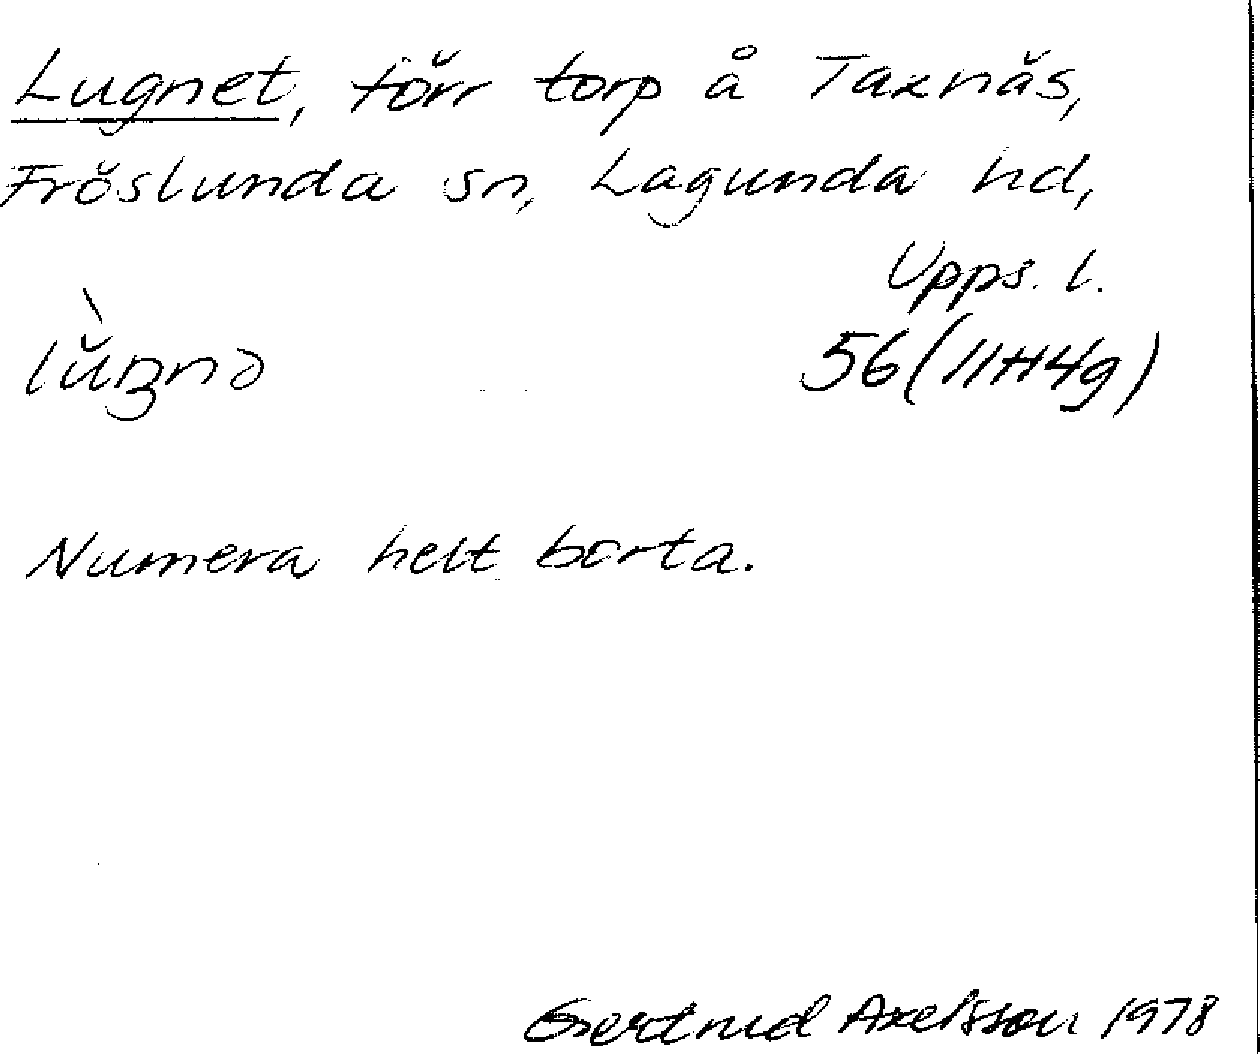 Lugnet, förr torp å Taxnäs,
Fröslunda sn, Lagunda hd,
Upps. l.
56 (11H4g)
Numera helt borta.
Gertrud Axelsson 1978